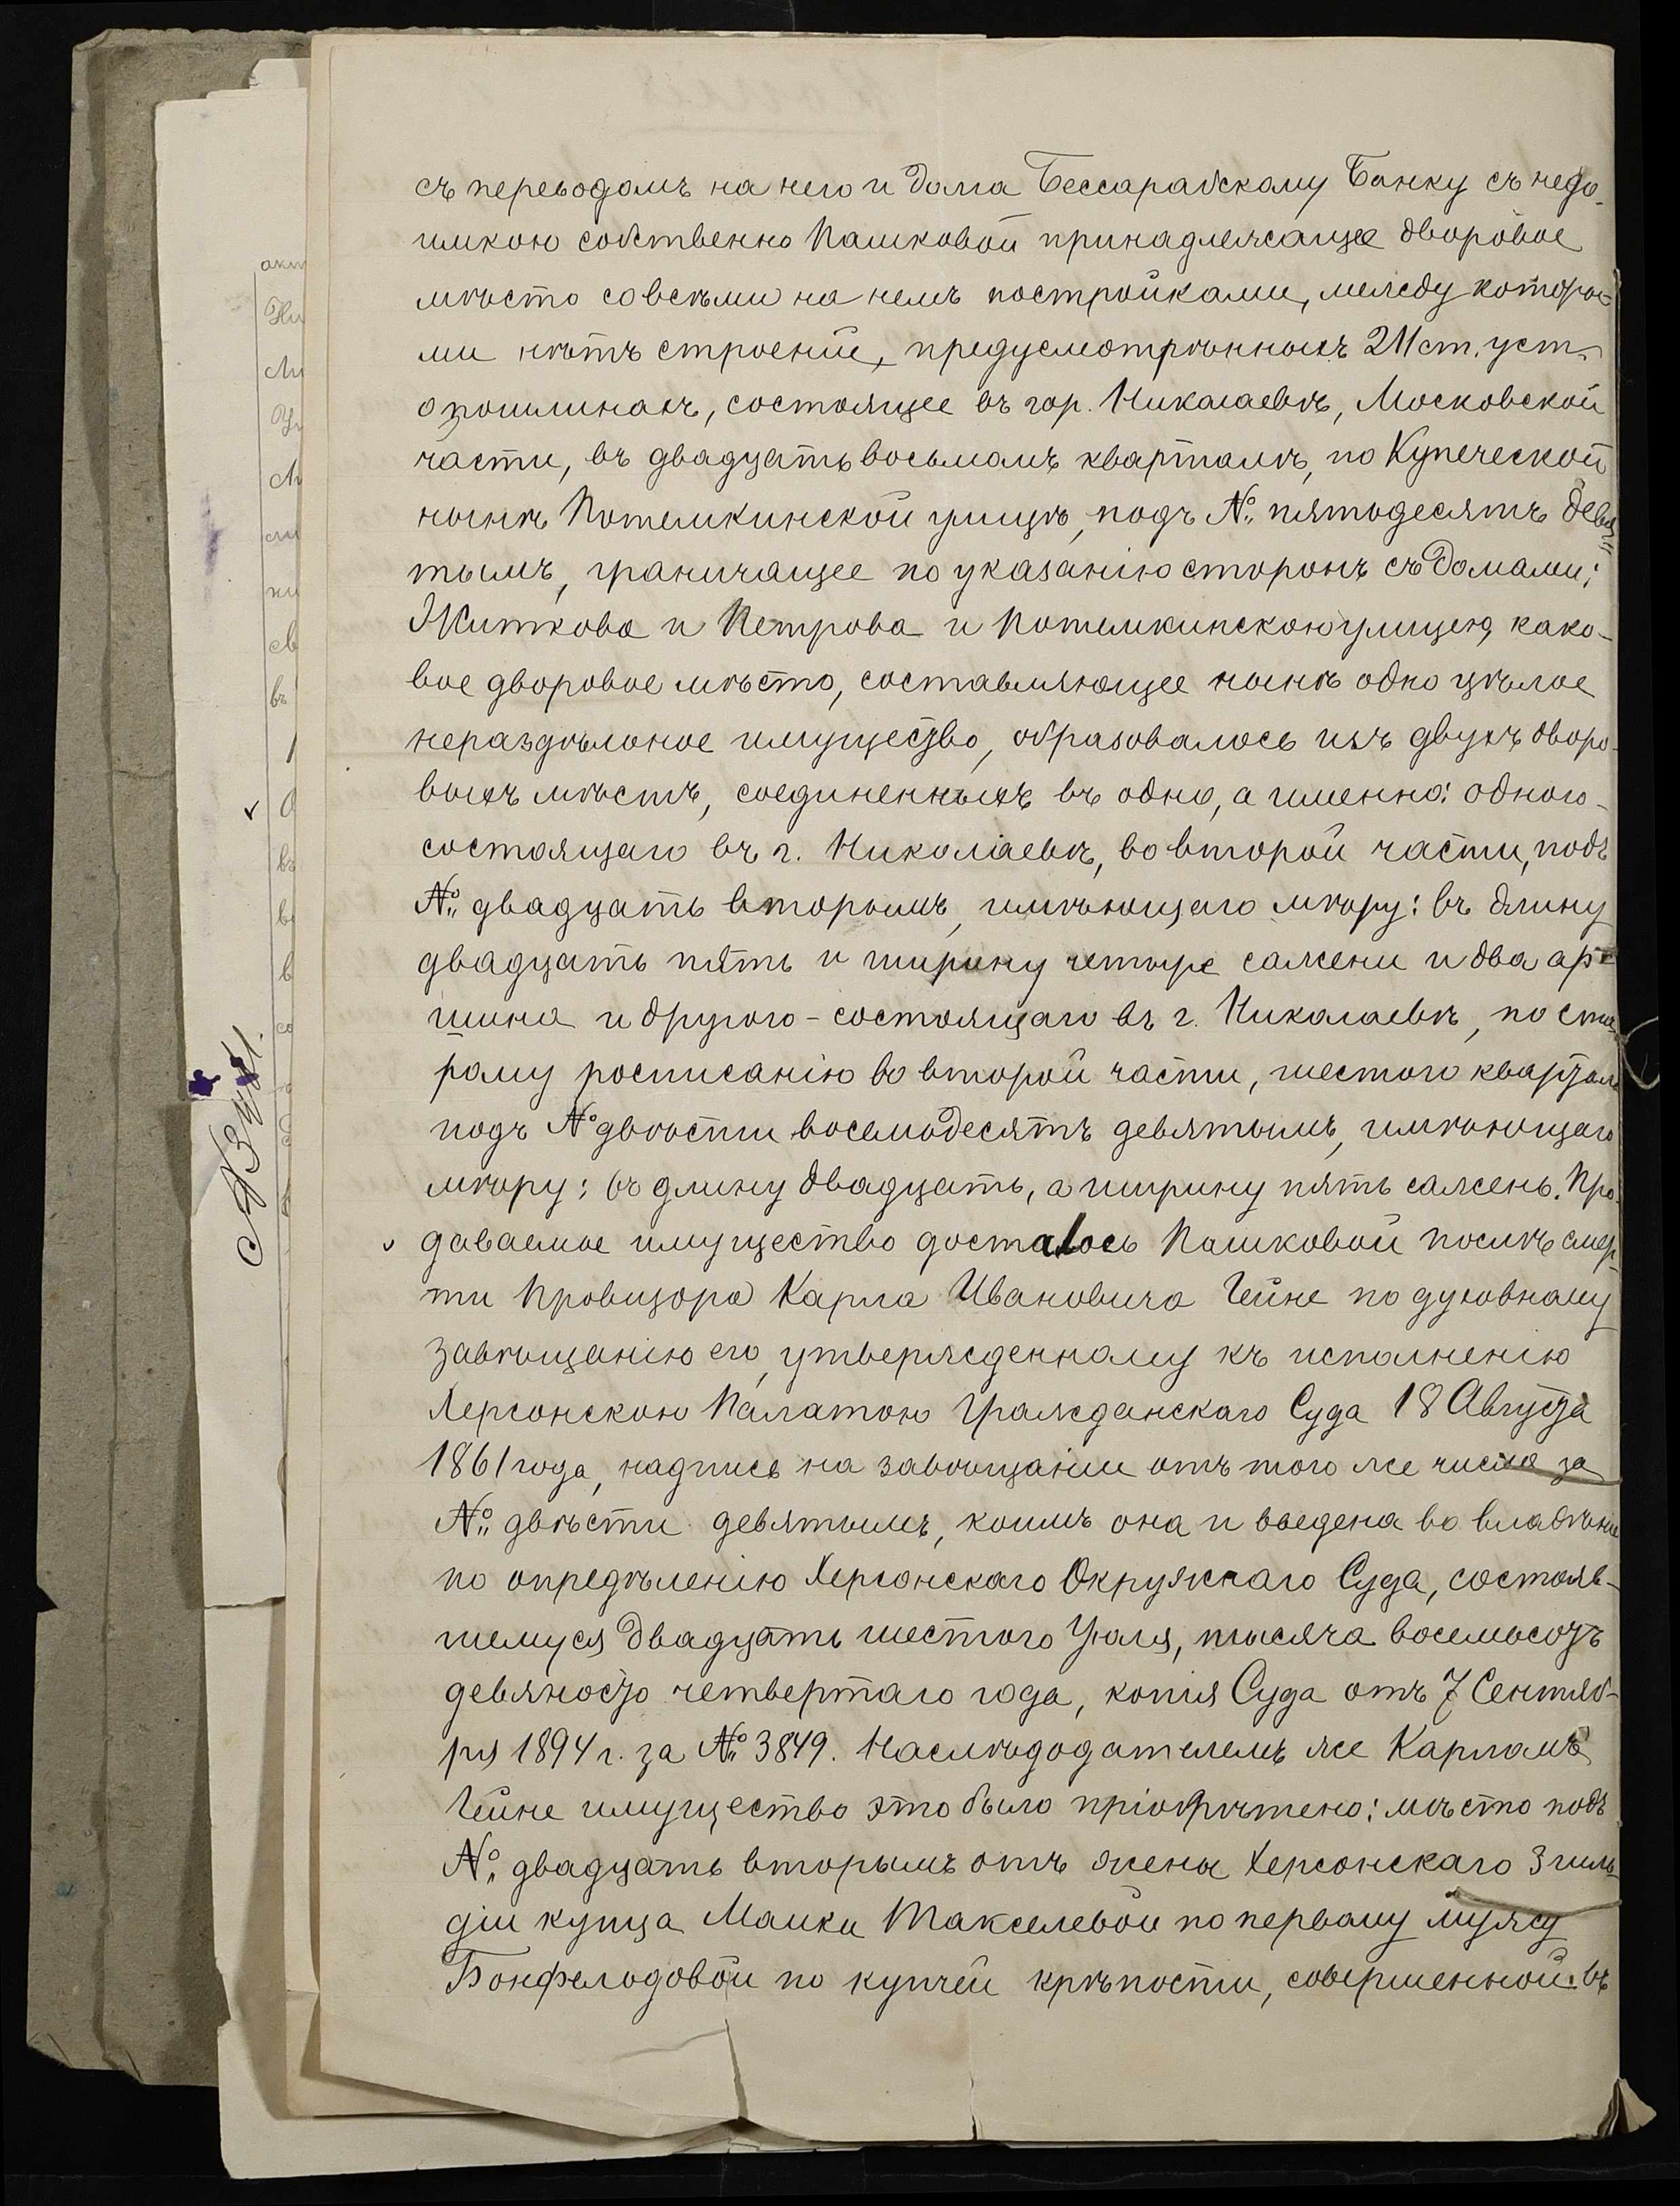 съ переводомъ на него и долга Бессарабскому Банку съ недо-
имкою собственно Пашковой принадлежащее дворовое
мѣсто со всѣми на немъ постройками, между которы-
ми нѣтъ строеній, предусмотрѣнныхъ 211 ст. уст.
о пошлинахъ, состоящее въ гор. Николаевѣ, Московской
части, въ двадцать восьмомъ кварталѣ, по Купеческой
нынѣ Потемкинской улицѣ, подъ №. пятьдесятъ девя-
тымъ, граничащее по указанію сторонъ съ домами:
Житкова и Петрова и Потемкинскою улицею, како-
вое дворовое мѣсто, составляющее нынѣ одно цѣлое
нераздѣльное имущество, образовалось изъ двухъ дворо-
выхъ мѣстъ, соединенныхъ въ одно, а именно: одного-
состоящаго въ г. Николаевѣ, во второй части, подъ
№. двадцать вторымъ, имѣющаго мѣру: въ длину
двадцать пять и ширину четыре сажени и два ар-
шина и другого - состоящаго въ г. Николаевѣ, по ста-
рому росписанію во второй части, шестого квартала
подъ № двѣсти восемьдесятъ девятымъ, имѣющаго
мѣру: въ длину двадцать, а ширину пять сажень. Про-
даваемое имущество досталось Пашковой послѣ смер-
ти Провизора Карла Ивановича Гейне по духовному
завѣщанію его, утвержденному къ исполненію
Херсонскою Палатою Гражданскаго Суда 18 Августа
1861 года, надпись на завѣщаніи отъ того же числа за
№. двѣсти девятымъ, коимъ она и введена во владѣніе
по опредѣленію Херсонскаго Окружнаго Суда, состояв-
шемуся двадцать шестого Іюля, тысяча восемьсотъ
девяносто четвертаго года, копія Суда отъ 7 Сентяб-
ря 1894 г. за №. 3849. Наслѣдодателемъ же Карломъ
Гейне имущество это было пріобрѣтено: мѣсто подъ
№. двадцать вторымъ отъ жены Херсонскаго 3 гиль-
діи купца Малки Макселевой по первому мужу
Бонфельдовой по купчей крѣпости, совершенной въ